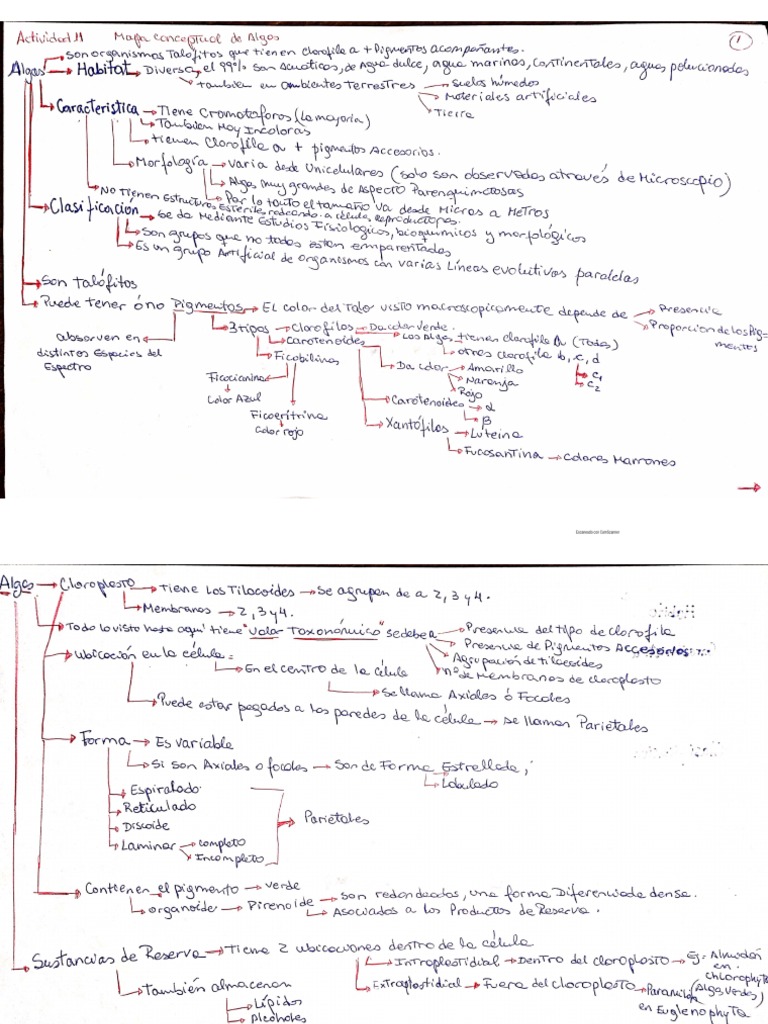 Actividad 11 Mapa conceptual de Algas
1
Son organismos Talófitos que tienen clorofila a + Pigmentos acompañantes.
Algas → Habitat → Diversa, el 99% son Acuáticos, de Agua dulce, agua marinas, continentales, aguas polucionadas
→ También en ambientes Terrestres → Suelos húmedos
→ Materiales artificiales
→ Tierra
Característica → Tiene Cromatoforos (La mayoría)
→ También Hay Incoloras
→ tienen Clorofila a + pigmentos Accesorios.
→ Morfología → Varia desde Unicelulares (solo son observadas através de Microscopio)
→ Algas muy grandes de Aspecto Parenquimatosas
→ Por lo tanto el tamaño va desde Micras a Metros
→ No Tienen Estructuras Estériles rodeando a células reproductoras.
Clasificación → Se da Mediante Estudios Fisiologicos, bioquimicos y morfológicos
→ Son grupos que no todos estan emparentados
→ Es un grupo Artificial de organismos con varias Líneas evolutivas paralelas
→ Son talófitos
→ Puede tener ó no Pigmentos → El color del Talo visto macroscopicamente depende de → Presencia
→ Proporcion de los Pigmentos
absorven en distintos Especies del Espectro
→ 3 tipos → Clorofilos → Da color verde.
→ Las Algas → tienen clorofila a (Todas)
→ otras clorofila b, c, d
→ c1
→ c2
→ Carotenoides
→ Da color → Amarillo
→ Naranja
→ Rojo
→ Ficobilinas
Ficocianina
Color Azul
Ficoeritrina
Color rojo
→ Carotenoides → α
→ β
→ Xantófilas → Luteina
→ Fucosantina → Colores Marrones
Escaneado con CamScanner
Algas → Cloroplasto → Tiene Los Tilacoides → Se agrupan de a 2, 3 y 4.
→ Membranas → 2, 3 y 4.
→ Todo lo visto hasta aqui tiene "Valor Taxonómico" se debe a → Presencia del tipo de clorofila
→ Presencia de Pigmentos Accesorios
→ Agrupación de tilacoides
→ nº de Membranas de cloroplasto
→ Ubicación en la célula:
→ En el centro de la célula
→ Se llama Axiales ó Focales
→ Puede estar pegados a las paredes de la célula → se llaman Parietales
→ Forma → Es variable
→ Si son Axiales o focales → Son de Forma Estrellada,
→ Lobulado
→ Espiralado.
→ Reticulado
→ Discoide
→ Laminar → completo
→ Incompleto
→ Parietales
→ Contienen el pigmento → verde
→ organoide → Pirenoide → Son redondeadas, una forma Diferenciada densa.
→ Asociados a los Productos de Reserva.
→ Sustancias de Reserva → Tiene 2 ubicaciones dentro de la célula
→ Intraplastidial → Dentro del cloroplasto → Ej: Almidón en chlorophyta (Algas verdes)
→ Extraplastidial → Fuera del cloroplasto → Paramilon en Euglenophyta
→ También almacenan
→ Lípidos
→ Alcoholes